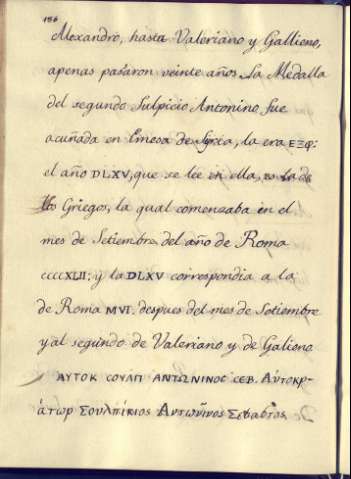 186
Alexandro, hasta Valeriano y Gallieno,
apenas pasaron veinte años. La Medalla
del segundo Sulpicio Antonino fue
acuñada en Emesa de Syria, la era ΕΞΦ:
el año DLXV, que se lee en ella, es la de
los Griegos, la qual comenzaba en el
mes de Setiembre del año de Roma
CCCCXLII: y la DLXV correspondia a la
de Roma MVI. despues del mes de Setiembre
y al segundo de Valeriano y de Galieno
ΑΥΤΟΚ СΟΥΛΠ ΑΝΤΩΝΙΝΟС СΕΒ. Αὐτοκρ-
άτωρ Σουλπίκιος Αντωνῖνος Σεβαστος.